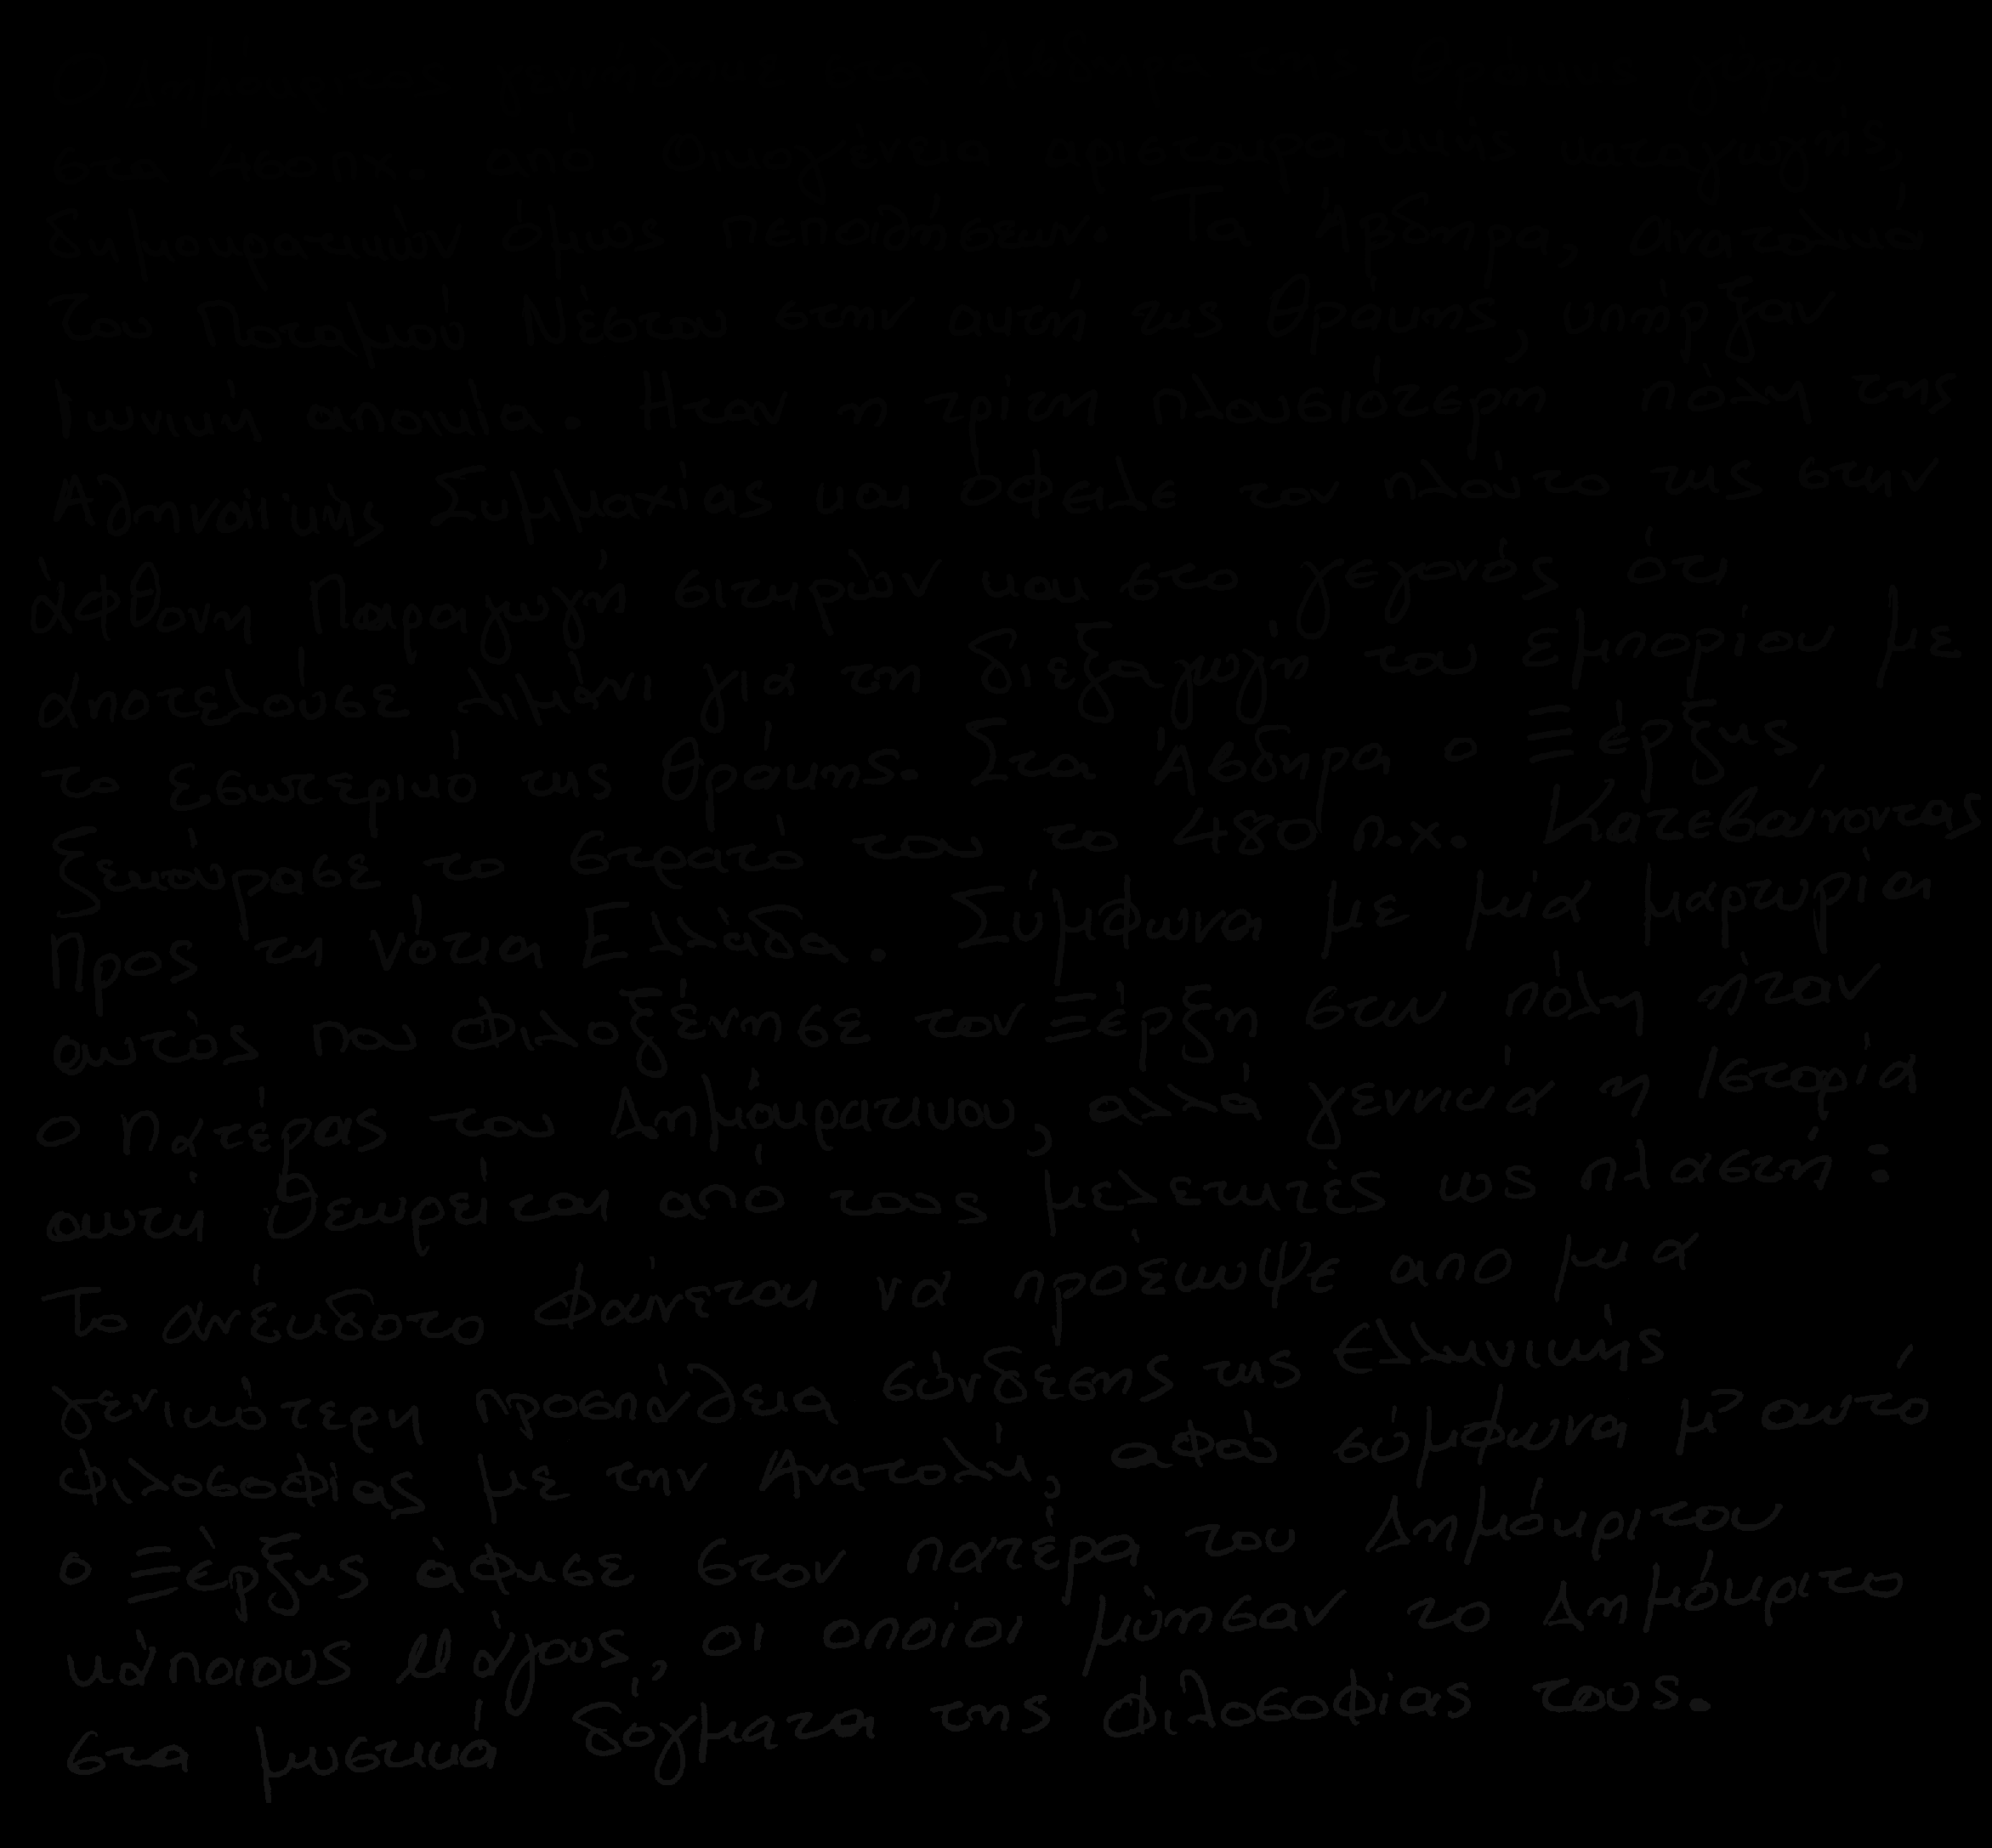 Ο Δημόκριτος γεννήθηκε στα Άβδηρα της Θράκης γύρω
στα 460 πχ. από Οικογένεια αριστοκρατικής καταγωγής,
δημοκρατικών όμως πεποιθήσεων. Τα Άβδηρα, ανατολικά
του Ποταμού Νέστου στην ακτή της Θράκης, υπήρξαν
Ιωνική αποικία. Ηταν η τρίτη πλουσιότερη πόλη της
Αθηναϊκής Συμμαχίας και όφειλε τον πλούτο της στην
άφθονη Παραγωγή σιτηρών και στο γεγονός ότι
αποτελούσε λιμάνι για τη διεξαγωγή του εμπορίου με
το εσωτερικό της Θράκης. Στα Άβδηρα ο Ξέρξης
ξεκούρασε το στρατό του το 480 π.χ. Κατεβαίνοντας
Προς τη νότια Ελλάδα. Σύμφωνα με μία μαρτυρία
αυτός που φιλοξένησε τον Ξέρξη στην πόλη ήταν
ο πατέρας του Δημόκρατικου, αλλά γεννικά η Ιστορία
αυτή θεωρείται από τους μελετητές ως πλαστή:
Το ανέκδοτο φαίνεται να προέκυψε απο μια
γενικότερη προσπάθεια σύνδεσης της Ελληνικής
φιλοσοφίας με την Ανατολή, αφού σύμφωνα μ' αυτό
ο Ξέρξης άφησε στον πατέρα του Δημόκριτου
κάποιους Μάγους, οι οποίοι μύησαν το Δημόκριτο
στα μυστικά δόγματα της φιλοσοφίας τους.